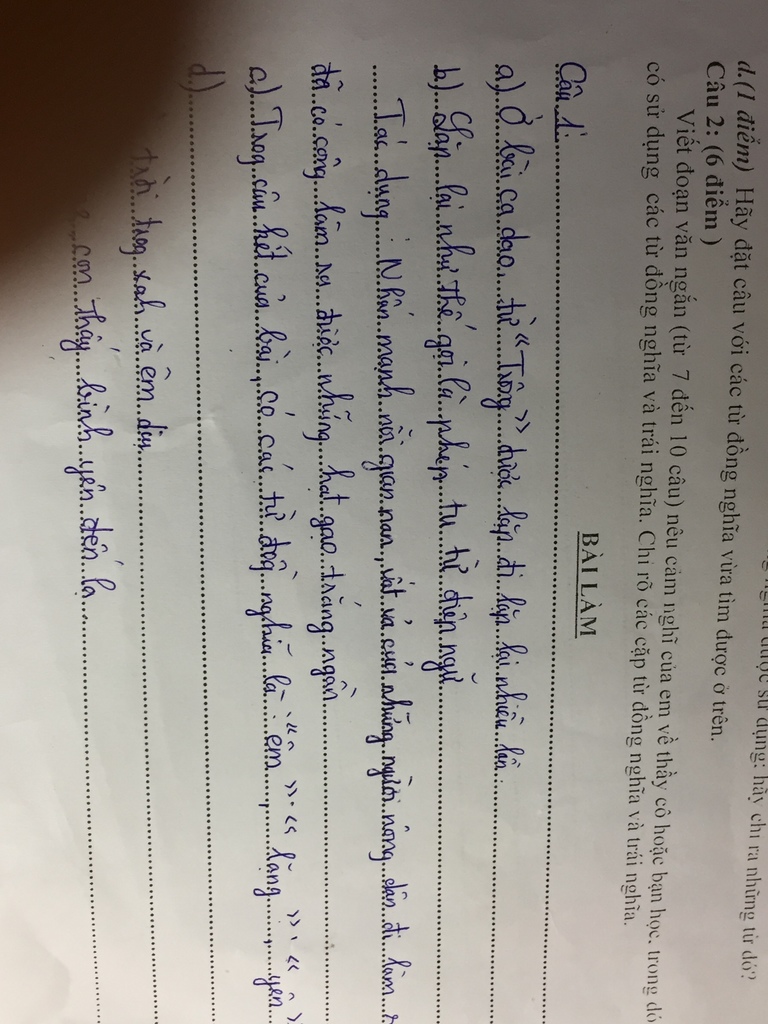 nghĩa được sử dụng: hãy chỉ ra những từ đó?
d.(1 điểm) Hãy đặt câu với các từ đồng nghĩa vừa tìm được ở trên.
Câu 2: (6 điểm )
Viết đoạn văn ngắn (từ 7 đến 10 câu) nêu cảm nghĩ của em về thầy cô hoặc bạn học. trong đó
có sử dụng các từ đồng nghĩa và trái nghĩa. Chỉ rõ các cặp từ đồng nghĩa và trái nghĩa.
BÀI LÀM
Câu 1:
a) Ở bài ca dao, từ "Trông" được lặp đi lặp lại nhiều lần
b) Lặp lại như thế gọi là phép tu từ điệp ngữ
Tác dụng : Nhấn mạnh nỗi gian nan, vất vả của những người nông dân đi làm
đã có công làm ra được những hạt gạo trắng ngần
c) Trog câu kết của bài, có các từ đồg nghĩa là : "êm", "lặng", "yên
d)
trời trog xah và êm dịu
con thấy bình yên đến lạ